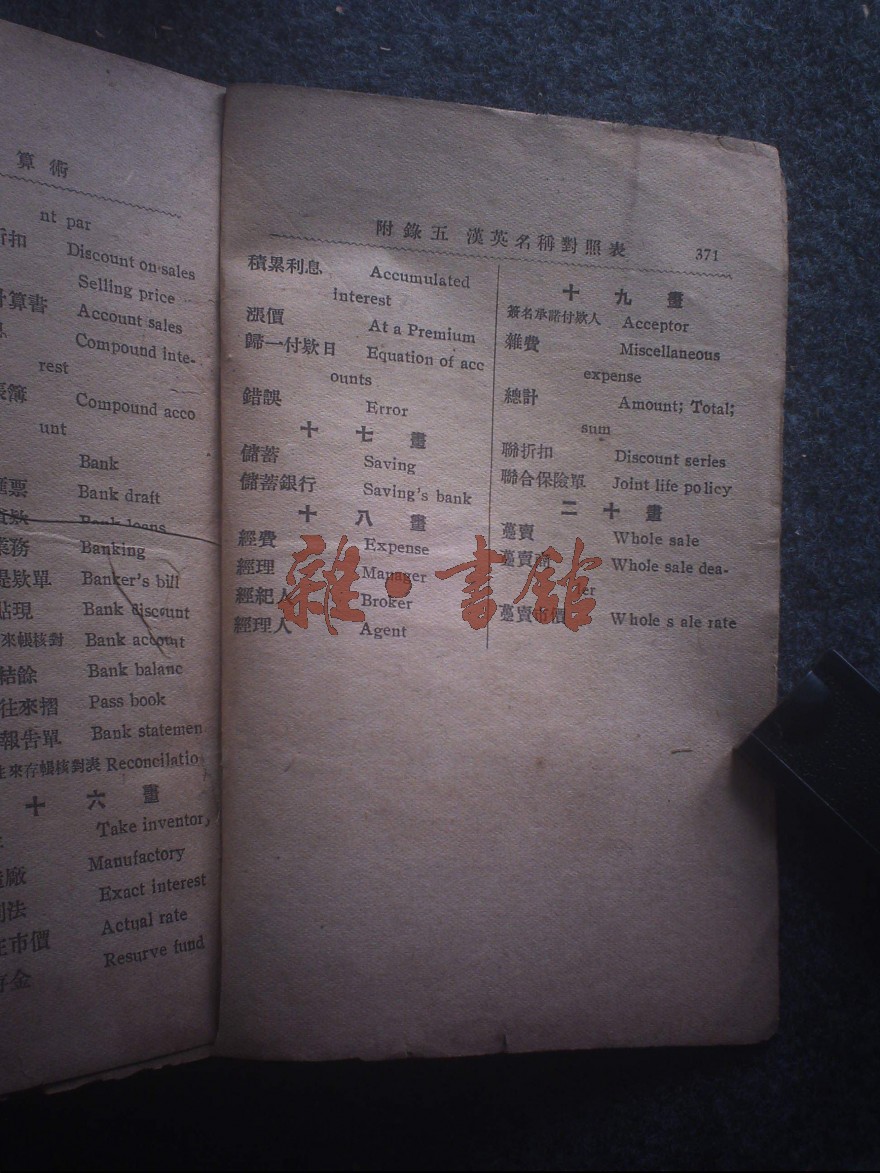 算術
nt par
折扣 Discount on sales
Selling price
計算書 Account sales
Compound inte-
rest
帳簿 Compound acco
unt
Bank
匯票 Bank draft
Bank loans
業務 Banking
Banker's bill
貼現 Bank discount
來帳核對 Bank account
結餘 Bank balanc
往來摺 Pass book
報告單 Bank statemen
往來存帳核對表 Reconcilatio
十六畫
Take inventory
廠 Manufactory
利法 Exact interest
市價 Actual rate
存金 Resurve fund
附錄五 漢英名稱對照表 371
積累利息 Accumulated
interest
漲價 At a Premium
歸一付欵日 Equation of acc
ounts
錯誤 Error
十七畫
儲蓄 Saving
儲蓄銀行 Saving's bank
十八畫
經費 Expense
經理 Manager
經紀人 Broker
經理人 Agent
十九畫
簽名承諾付欵人 Acceptor
雜費 Miscellaneous
expense
總計 Amount; Total;
sum
聯折扣 Discount series
聯合保險單 Joint life policy
二十畫
躉賣 Whole sale
躉賣商 Whole sale dea-
ler
躉賣市價 Whole s ale rate
雜·書館